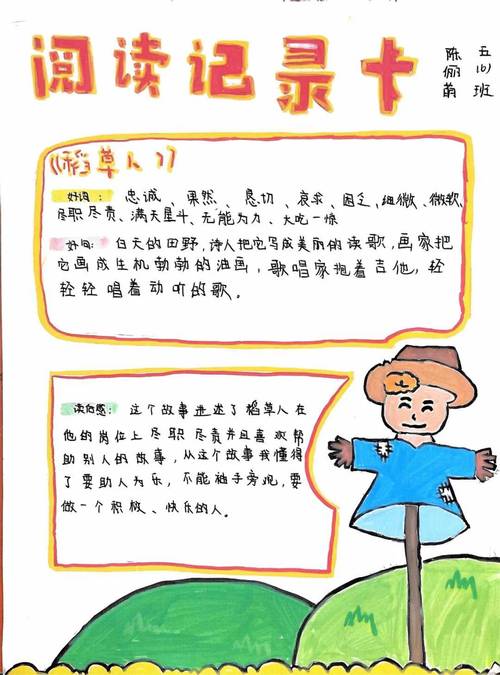 阅读记录卡
五(6)班
陈俪萌
《稻草人》
好词：忠诚、果然、恳切、哀伞、困乏、细微、微软、
尽职尽责、满天星斗、无能为力、大吃一惊
好句：白天的田野，诗人把它写成美丽的读歌，画家把
它画成生机勃勃的油画，歌唱家抱着吉他，轻
轻轻唱着动听的歌。
读后感：这个故事进述了稻草人在
他的岗位上尽职尽责并且喜欢帮
助别人的故事，从这个故事我懂得
了要助人为乐，不能袖手旁观，要
做一个积极、快乐的人。